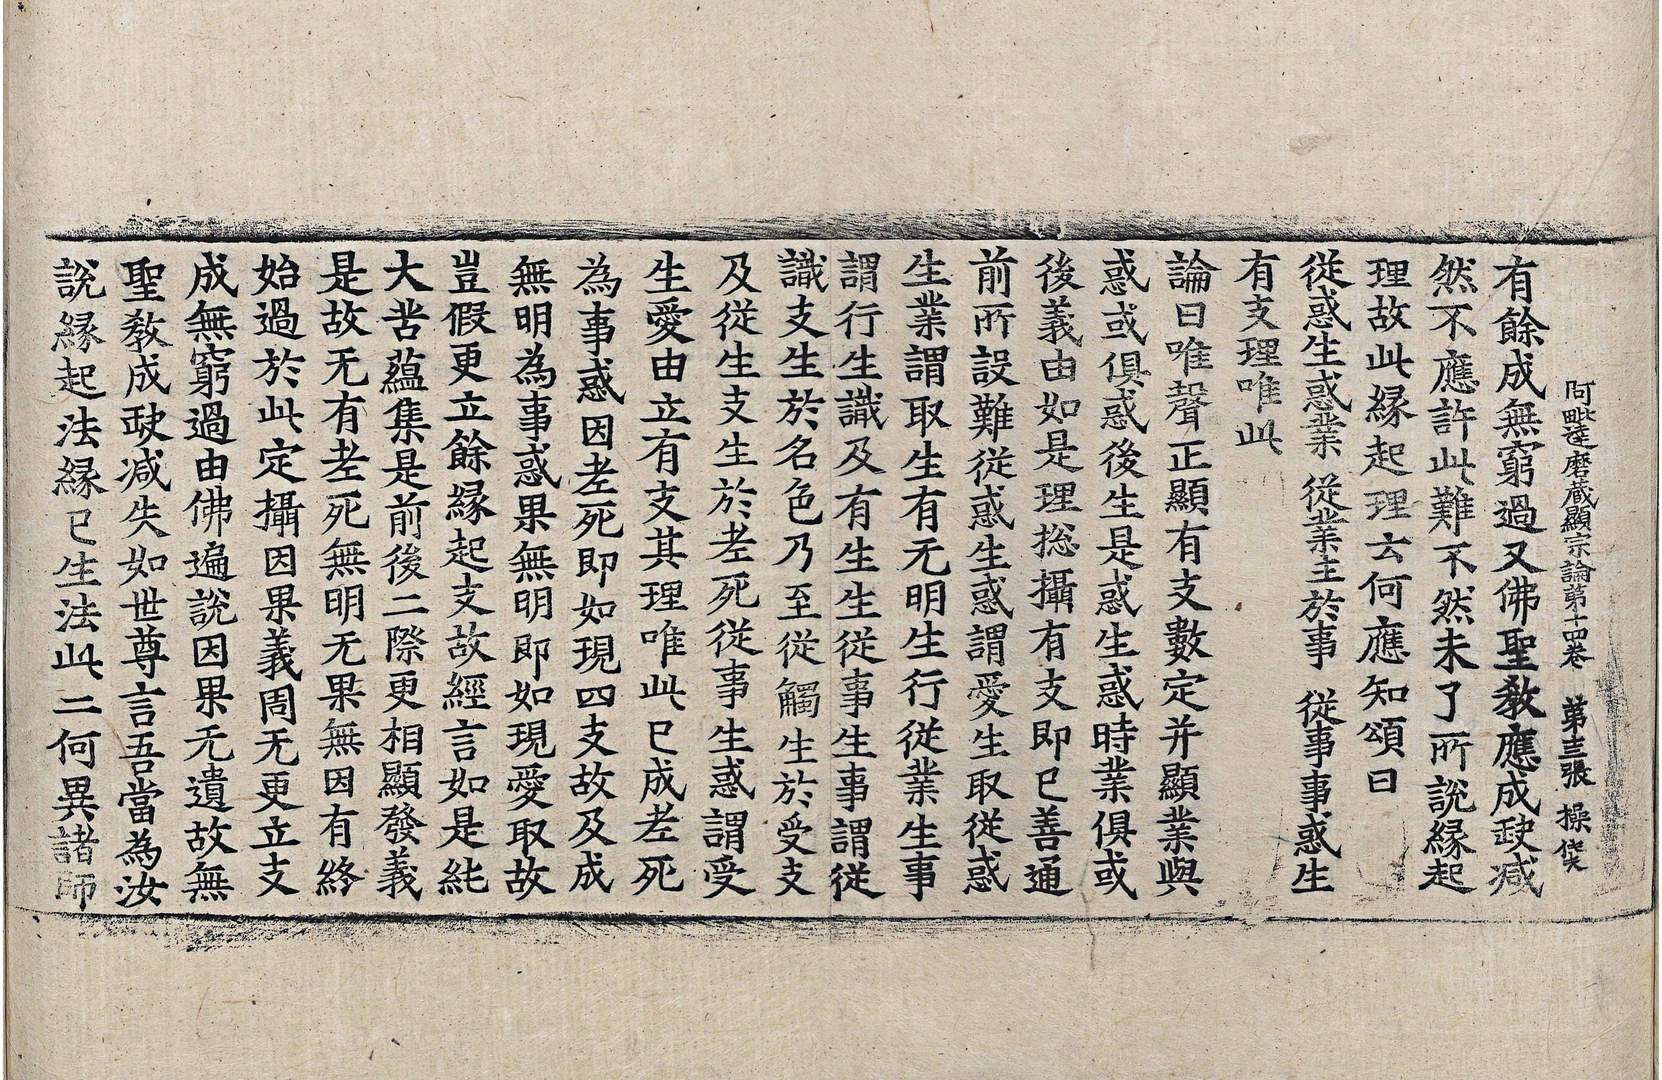 阿毗達磨藏顯宗論第十四卷　第三張　操
有餘成無窮過又佛聖教應成缺减
然不應許此難不然未了所說緣起
理故此緣起理云何應知頌曰
從惑生惑業　從業生於事　從事事惑生
有支理唯此
論曰唯聲正顯有支數定并顯業與
惑或俱惑後生是惑生惑時業俱或
後義由如是理捴攝有支即已善通
前所設難從惑生惑謂愛生取從惑
生業謂取生有无明生行從業生事
謂行生識及有生生從事生事謂從
識支生於名色乃至從觸生於受支
及從生支生於老死從事生惑謂受
生愛由立有支其理唯此已成老死
為事惑因老死即如現四支故及成
無明為事惑果無明即如現愛取故
豈假更立餘緣起支故經言如是純
大苦蘊集是前後二際更相顯發義
是故无有老死無明无果無因有終
始過於此定攝因果義周无更立支
成無窮過由佛遍說因果无遺故無
聖教成缺减失如世尊言吾當為汝
說緣起法緣已生法此二何異諸師